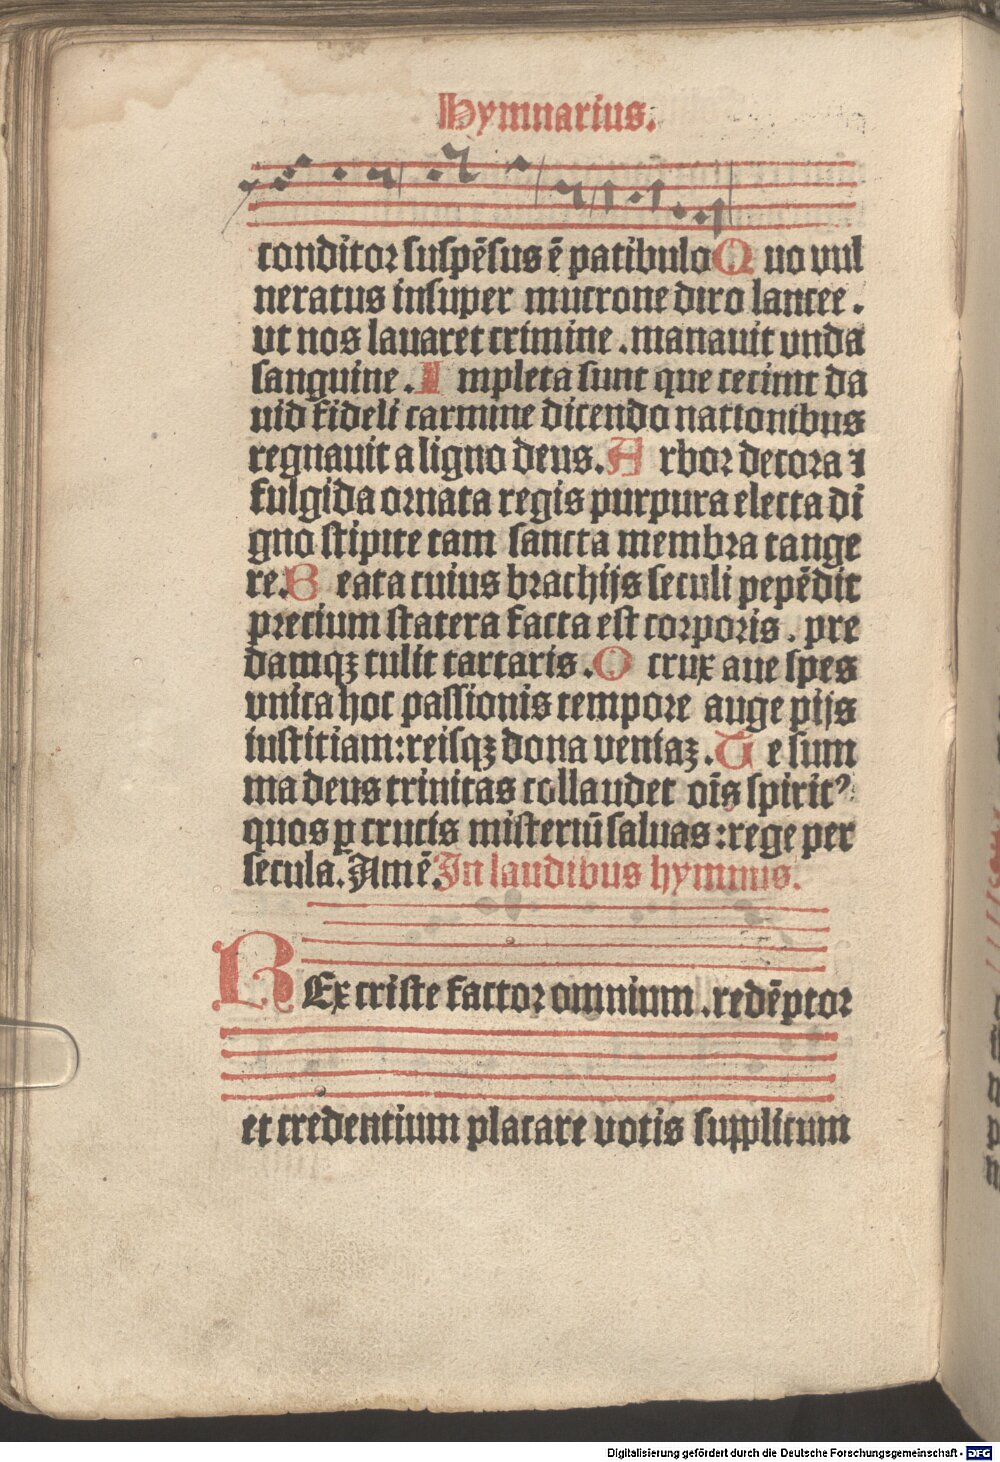 Hymnarius.
conditor suspēsus ē patibulo Quo vul
neratus insuper mucrone diro lancee.
vt nos lauaret crimine .manauit vnda
sanguine. Impleta sunt que cecinit da
uid fideli carmine dicendo nationibus
regnauit a ligno deus. Arbor decora ⁊
fulgida ornata regis purpura electa di
gno stipite tam sancta membra tange
re. Beata cuius brachijs seculi pepēdit
precium statera facta est corporis. pre
damqꝫ tulit tartaris. O crux aue spes
vnica hoc passionis tempore auge pijs
iusticiam:reisqꝫ dona veniaꝫ. Te sum
ma deus trinitas collaudet oīs spiritꝰ
quos ꝑ crucis misteriū saluas:rege per
secula. Amē. In laudibus hymnus.
REx criste factor omnium .redēptor
et credentium placare votis supplicum
Digitalisierung gefördert durch die Deutsche Forschungsgemeinschaft - DFG